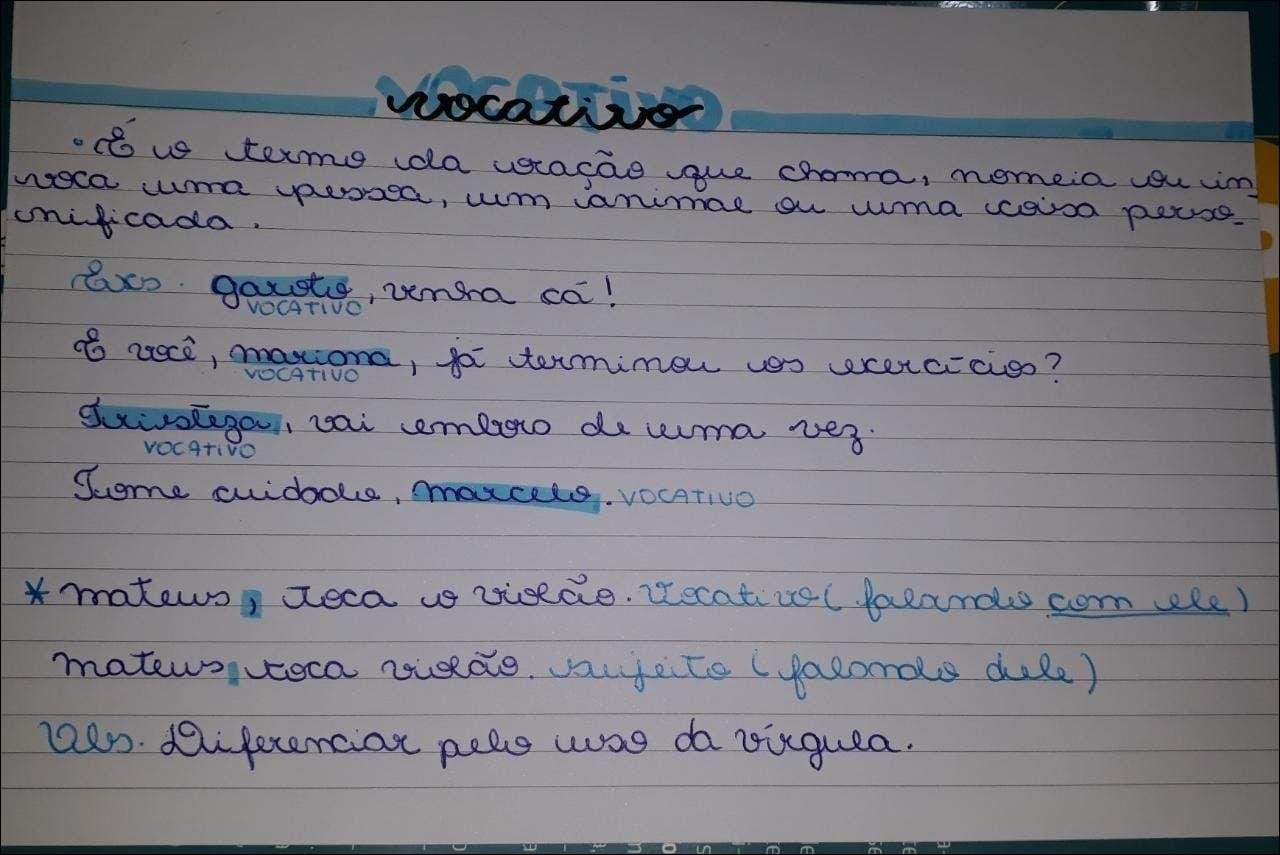 vocativo
• É o termo da oração que chama, nomeia ou in
voca uma pessoa, um animal ou uma coisa perso-
nificada.
Exs. garoto, venha cá!
VOCATIVO
E você, mariana, já terminou os exercícios?
VOCATIVO
Tristeza, vai embora de uma vez.
VOCATIVO
Tome cuidado, marcelo. VOCATIVO
* mateus, toca o violão. Vocativo (falando com ele)
mateus toca violão. sujeito (falando dele)
Obs. Diferenciar pelo uso da vírgula.